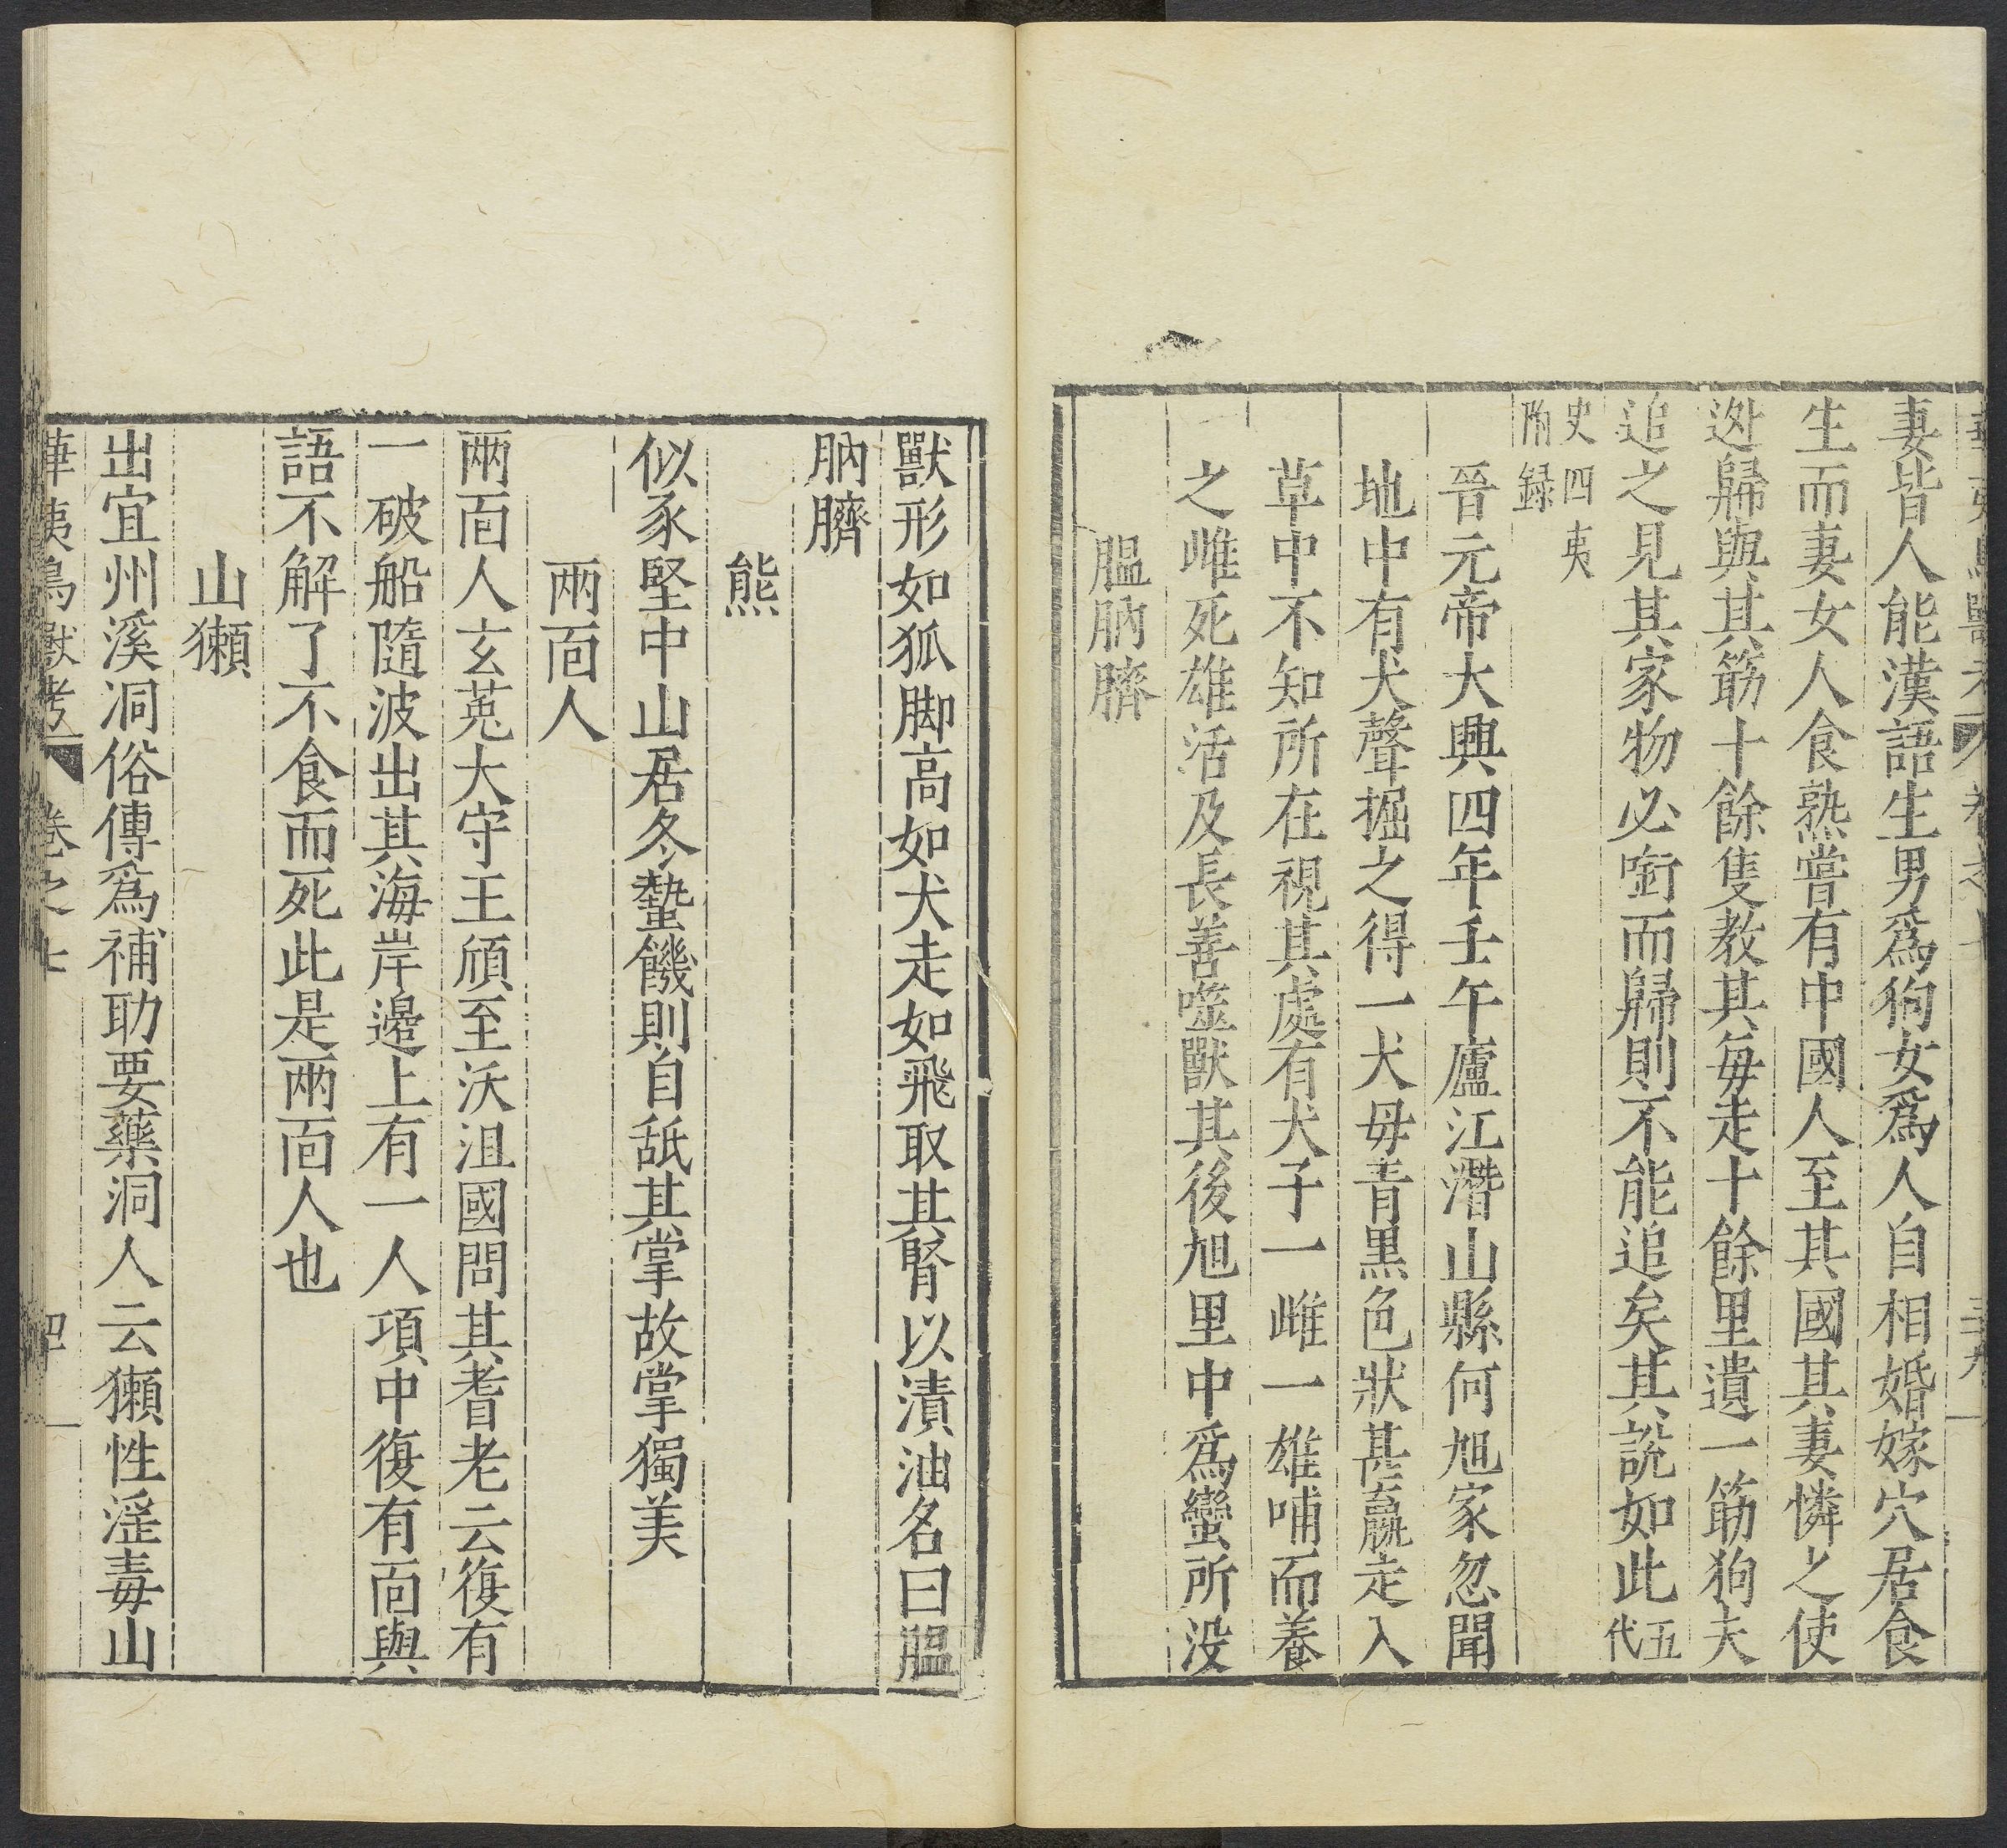 妻皆人能漢語生男爲狗女爲人自相婚嫁穴居食
生而妻女人食熟嘗有中國人至其國其妻憐之使
迯歸與其筯十餘隻教其每走十餘里遺一筯狗夫
追之見其家物必啣而歸則不能追矣其說如此五代
史四夷附録
晉元帝大興四年壬午廬江潛山縣何旭家忽聞
地中有犬聲掘之得一犬母青黑色狀甚羸走入
草中不知所在視其處有犬子一雌一雄哺而養
之雌死雄活及長善噬獸其後旭里中爲蠻所没
膃肭臍
獸形如狐脚高如犬走如飛取其腎以漬油名曰膃
肭臍
熊
似豕堅中山居冬蟄饑則自舐其掌故掌獨美
兩靣人
兩靣人玄菟大守王頎至沃沮國問其耆老云復有
一破船隨波出其海岸邊上有一人項中復有靣與
語不解了不食而死此是兩靣人也
山獺
出宜州溪洞俗傳爲補助要藥洞人云獺性淫毒山
華夷鳥獸考 卷之七